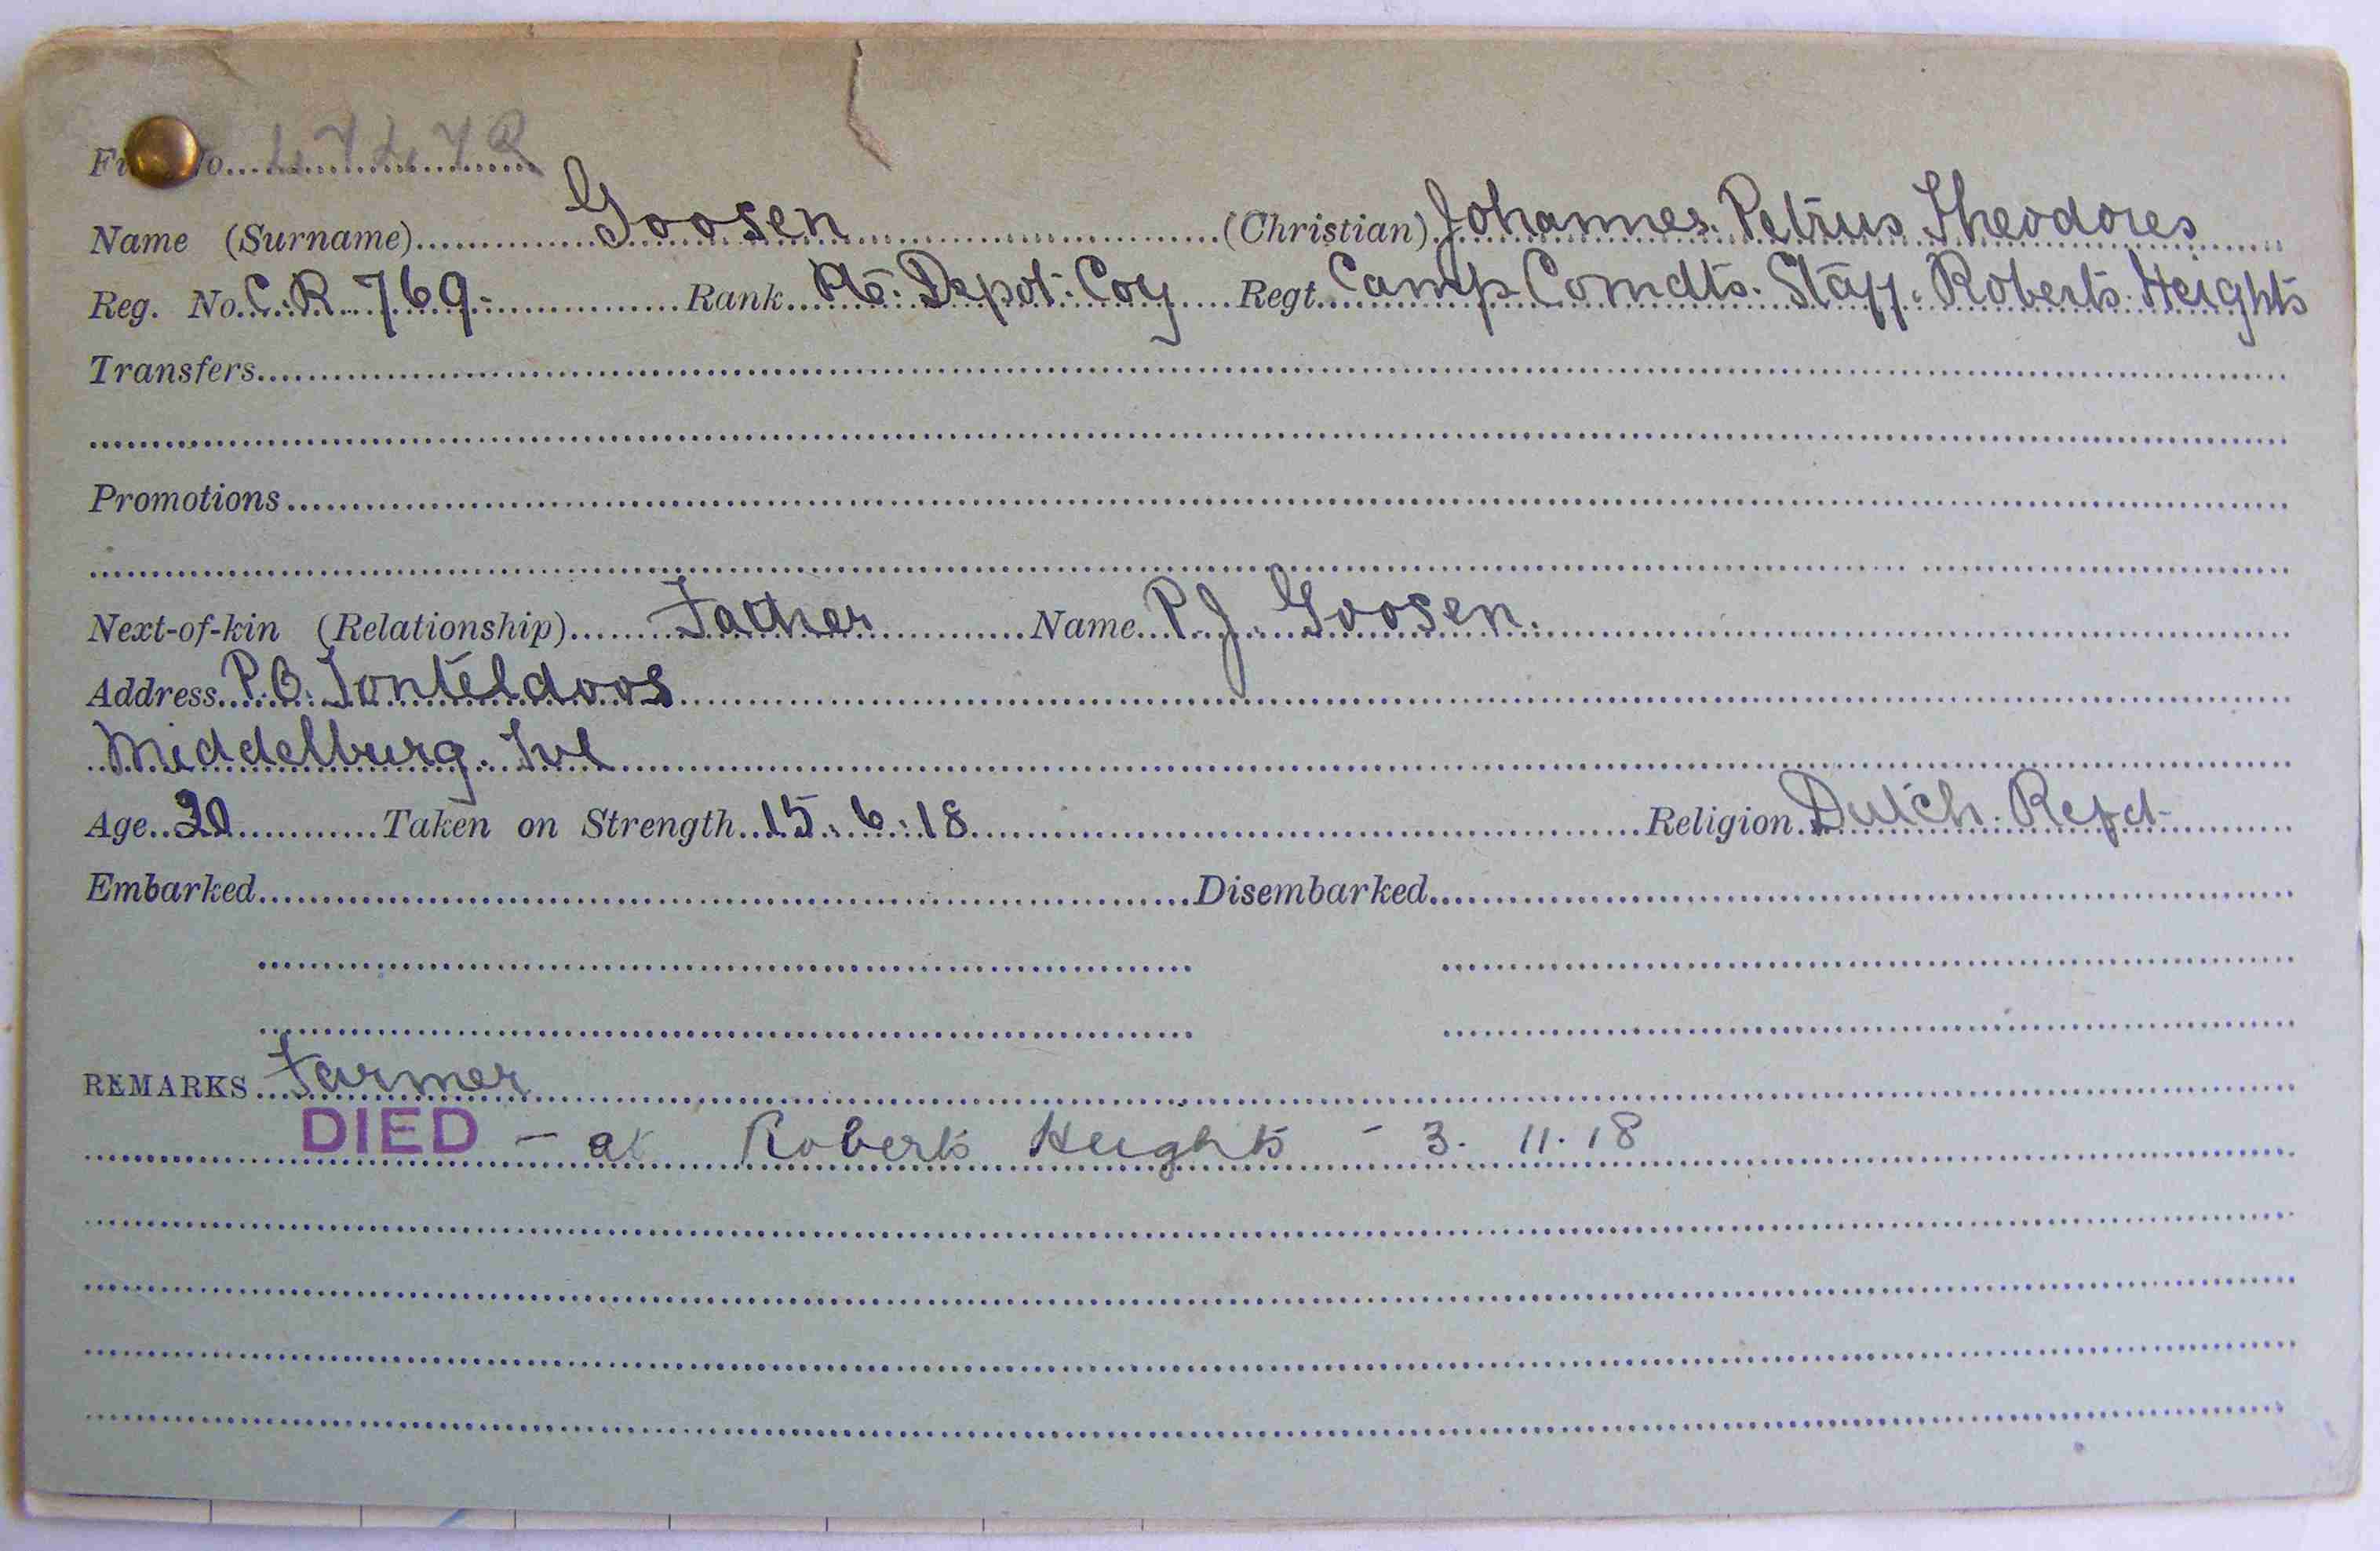 Name (Surname) Goosen (Christian) Johannes Petrus Theodores
Reg. No. C.R. 769. Rank Pte. Depot Coy Regt. Camp Comdts. Staff. Roberts Heights
Transfers
Promotions
Next-of-kin (Relationship) Father Name P.J. Goosen.
Address P.O. Tonteldoos
Middelburg. Tvl
Age Taken on Strength 15.6.18 Religion Dutch Refd
Embarked Disembarked
REMARKS Farmer
DIED - at Roberts Heights - 3. 11. 18